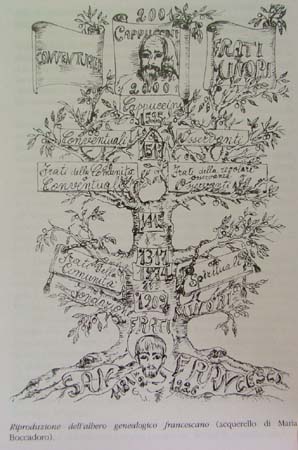 2001
CAPPUCCINI
CONVENTUALI
FRATI
MINORI
2000
Cappuccini
1525
Conventuali
Osservanti
1517
Frati della Comunità
o
Conventuali
Frati della regolare
osservanza
Osservanti
1415
1347
1274
Frati della
Comunità
Spirituali
1209
FRATI
MINORI
SAN
FRANCESCO
1226
Riproduzione dell'albero genealogico francescano (acquerello di Maria
Boccadoro).